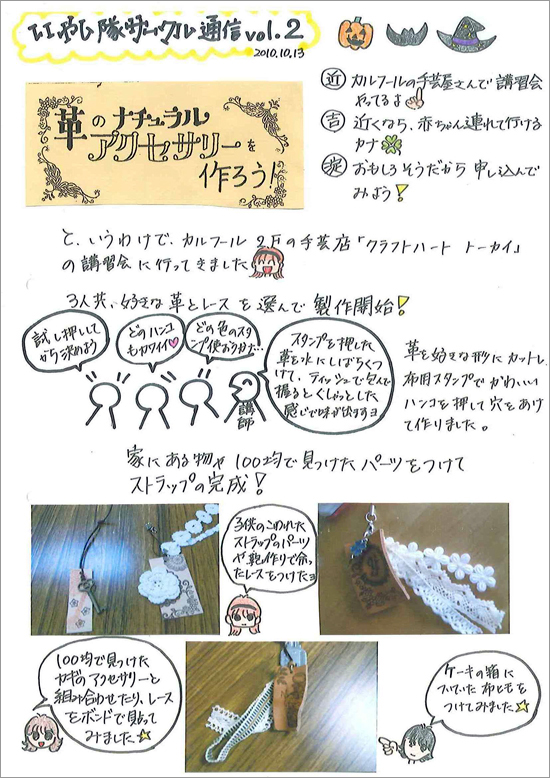 いやし隊サークル通信 vol.2
2010.10.13
近 カルフールの手芸屋さんで講習会
やってるよ
吉 近くなら、赤ちゃん連れて行ける
カナ
おもしろそうだから申し込んで
みよう!
革のナチュラル
アクセサリーを
作ろう!
と、いうわけで、カルフール2Fの手芸店「クラフトハート トーカイ」
の講習会に行ってきました
3人共、好きな革とレースを選んで製作開始!
試し押しして
から決めよう
どのハンコ
もカワイイ
どの色のスタ
ンプ使おうかナ…
講師
スタンプを押した
革を水にしばらくつ
けて、ティッシュで包んで
握るとくしゅっとした
感じで味が出ますヨ
革を好きな形にカットし、
布用スタンプでかわいい
ハンコを押して穴をあけ
て作りました。
家にある物や100均で見つけたパーツをつけて
ストラップの完成!
子供のこわれた
ストラップのパーツ
や鞄作りで余っ
たレースをつけたヨ
100均で見つけた
カギのアクセサリーと
組み合わせたり、レース
をボンドで貼って
みました
ケーキの箱に
ついていた布ひもを
つけてみました